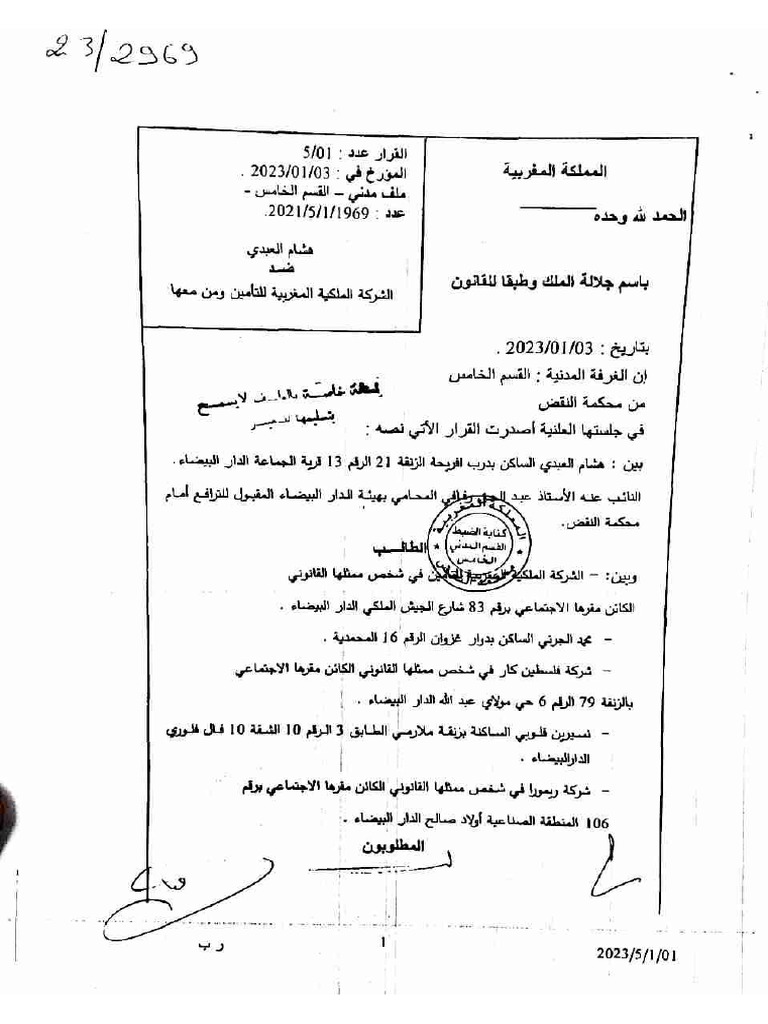 23/2969
المملكة المغربية
الحمد لله وحده
باسم جلالة الملك وطبقا للقانون
القرار عدد : 5/01
المؤرخ في : 2023/01/03 .
ملف مدني – القسم الخامس -
عدد : 2021/5/1/1969.
هشام العبدي
ضد
الشركة الملكية المغربية للتأمين ومن معها
بتاريخ : 2023/01/03 .
إن الغرفة المدنية : القسم الخامس
من محكمة النقض
في جلستها العلنية أصدرت القرار الآتي نصه :
نسخة خاصة بالملف لا يسمح
بتسليمها للغير
بين : هشام العبدي الساكن بدرب افريحة الزنقة 21 الرقم 13 قرية الجماعة الدار البيضاء .
النائب عنه الأستاذ عبد المحامي بهيئة الدار البيضاء المقبول للترافع أمام
محكمة النقض.
المملكة المغربية
كتابة الضبط
القسم المدني
الخامس
محكمة النقض
الطالب
وبين: – الشركة الملكية المغربية للتأمين في شخص ممثلها القانوني
الكائن مقرها الاجتماعي برقم 83 شارع الجيش الملكي الدار البيضاء .
– محمد الجرني الساكن بدوار غزوان الرقم 16 المحمدية .
– شركة فلسطين كار في شخص ممثلها القانوني الكائن مقرها الاجتماعي
بالزنقة 79 الرقم 6 حي مولاي عبد الله الدار البيضاء .
– نسيرين قلوبي الساكنة بزنقة ملارمي الطابق 3 الرقم 10 الشقة 10 فال فلوري
الدارالبيضاء .
– شركة ريمورا في شخص ممثلها القانوني الكائن مقرها الاجتماعي برقم
106 المنطقة الصناعية أولاد صالح الدار البيضاء .
المطلوبون
ر ب
1
2023/5/1/01